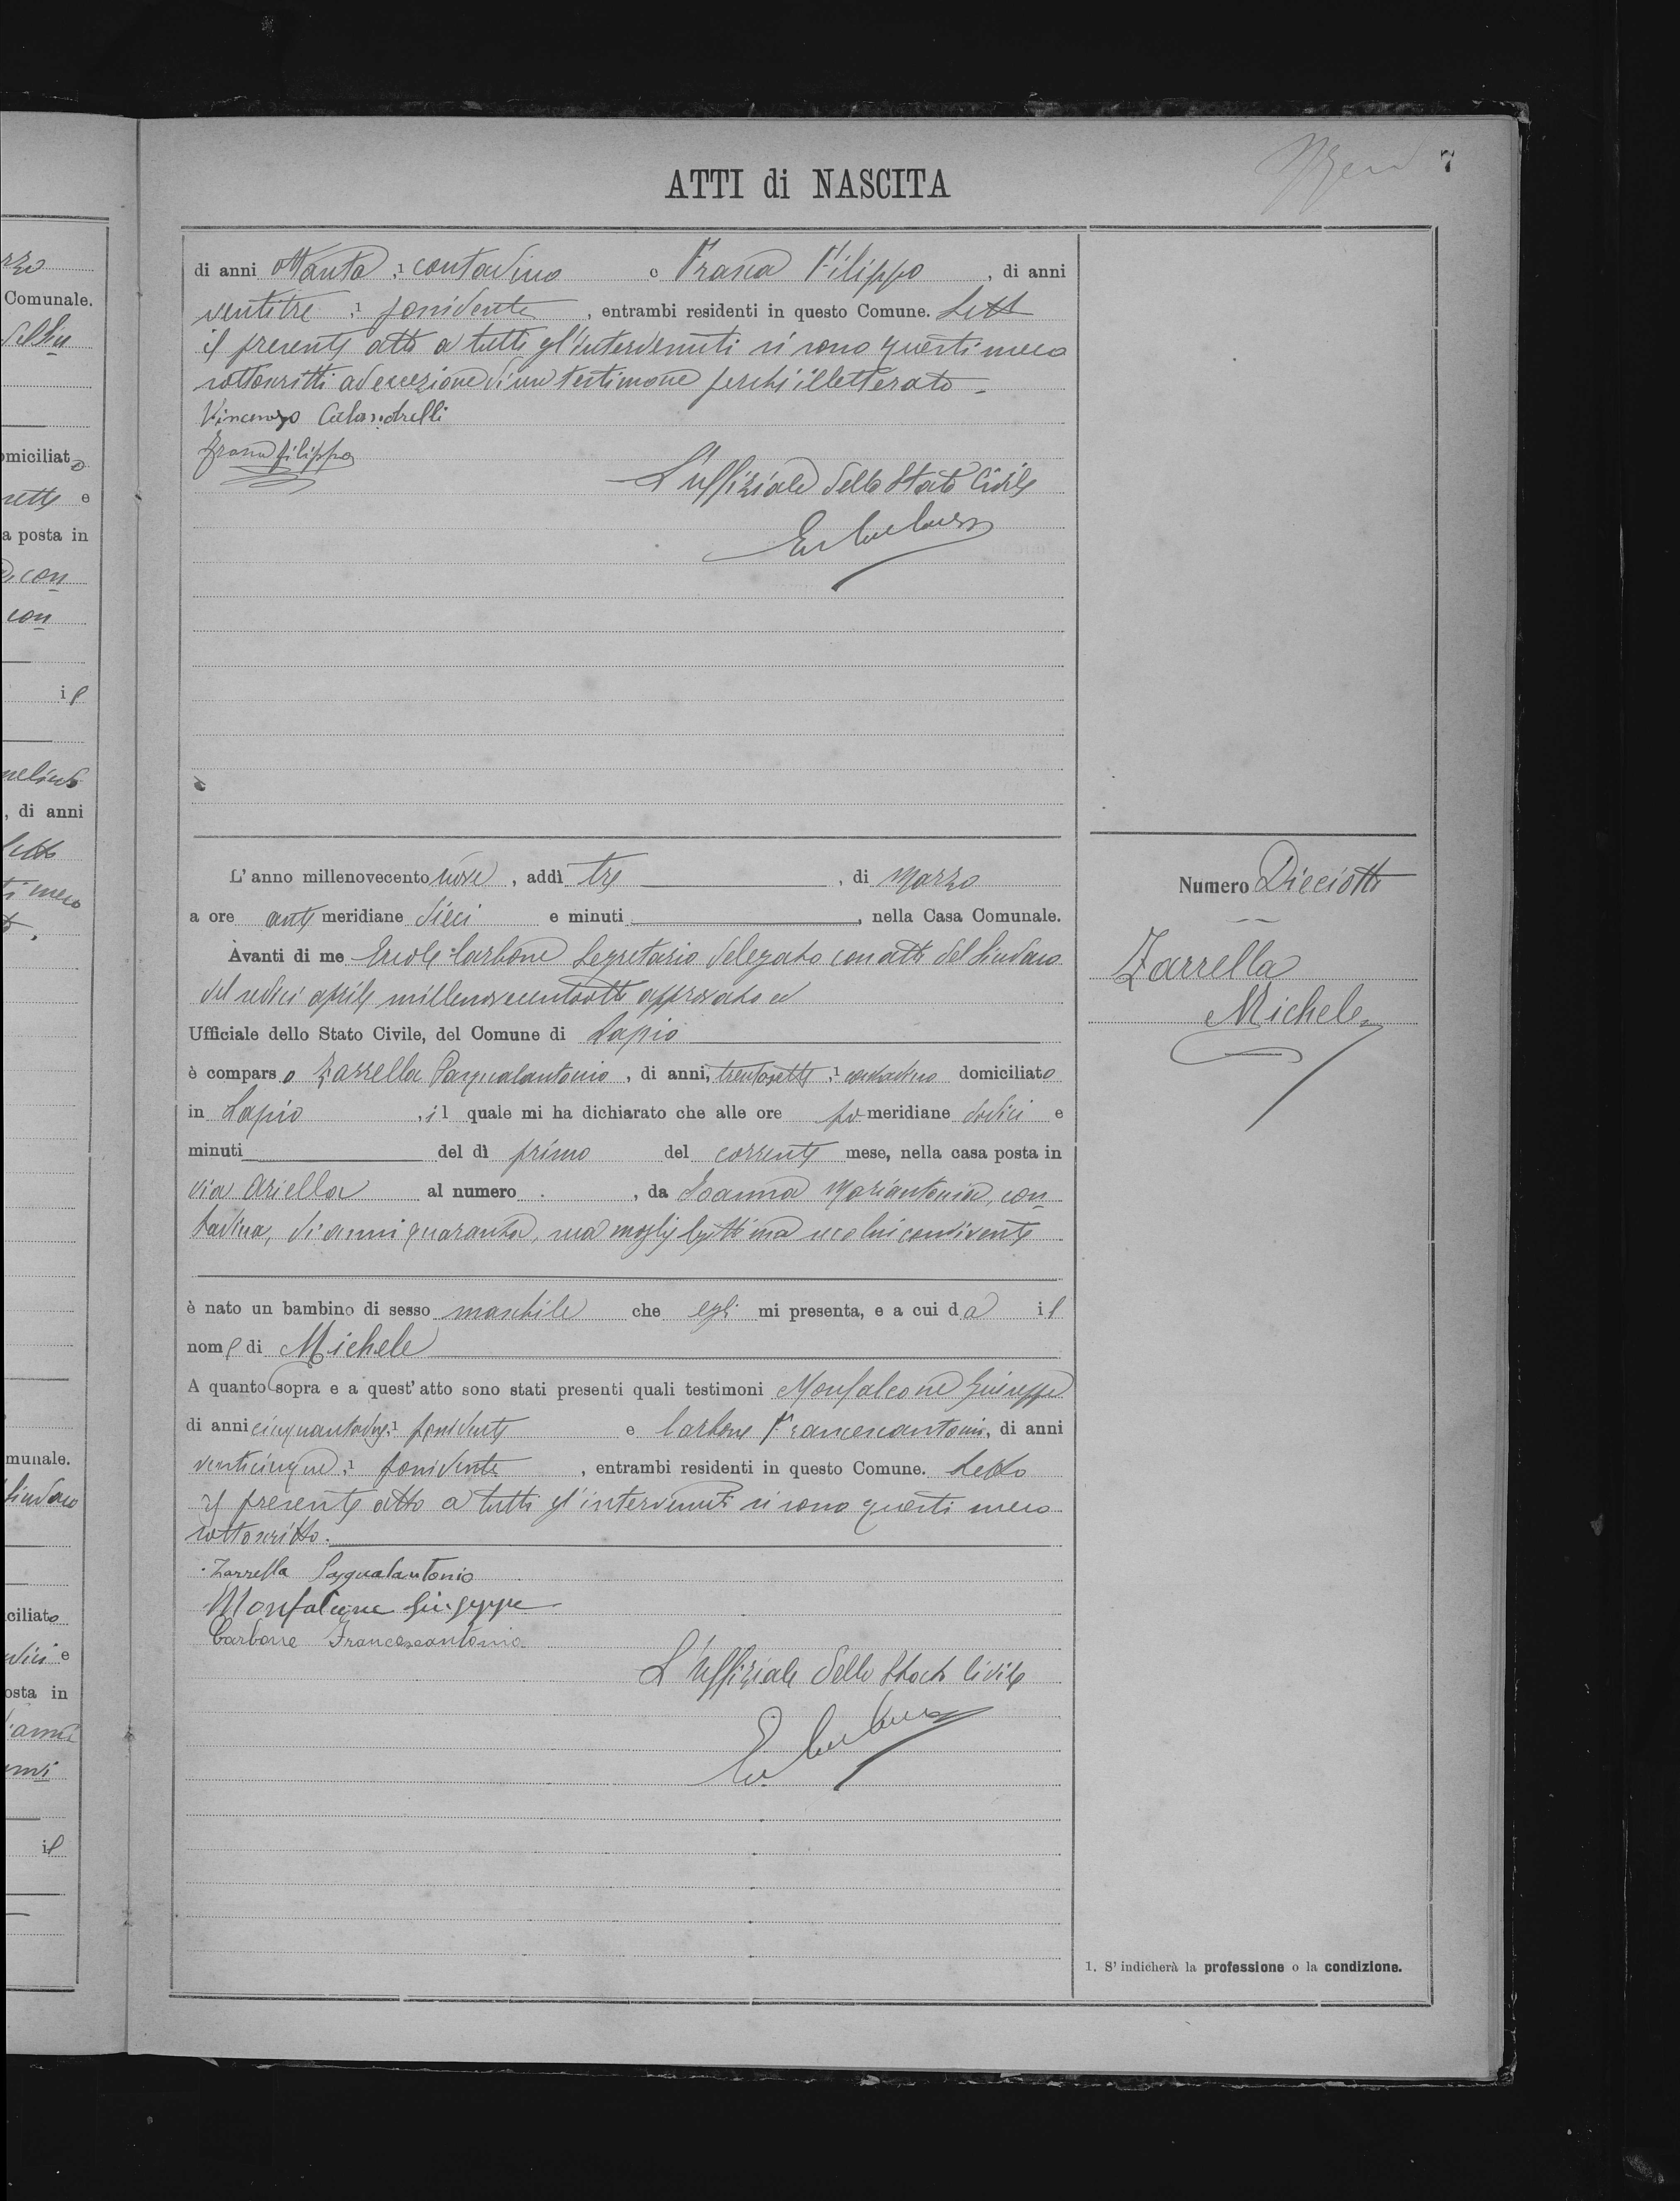 7
ATTI di NASCITA
rzo
Comunale.
omiciliato
e
a posta in
con
con
il
, di anni
ti meco
munale.
Sindaco
ciliato
e
osta in
il
di anni ottanta, 1 contadino e Frasca Filippo, di anni
ventitre, 1 possidente, entrambi residenti in questo Comune. Letto
il presente atto a tutti gl'intervenuti si sono questi meco
sottoscritti ad eccezione d'un testimone perchè illetterato
Vincenzo Calandrelli
Filippo
L'uffiziale dello Stato Civile
L'anno millenovecento nove, addì tre, di Marzo
a ore anti meridiane dieci e minuti, nella Casa Comunale.
Avanti di me Ercole Carbone Segretario delegato con atto del Sindaco
del sedici aprile millenovecentootto approvato ed
Ufficiale dello Stato Civile, del Comune di Lapio
è comparso Zarrella Pasqualantonio, di anni, trentasette, 1 contadino domiciliato
in Lapio, il quale mi ha dichiarato che alle ore po meridiane dodici e
minuti del dì primo del corrente mese, nella casa posta in
via Ariella al numero, da Ioanna Mariantonia, con
tadina, di anni quaranta, sua moglie legittima seco lui convivente
è nato un bambino di sesso maschile che egli mi presenta, e a cui dà il
nome di Michele
A quanto sopra e a quest'atto sono stati presenti quali testimoni Monfalcone Giuseppe
di anni cinquantadue, 1 possidente e Carbone Francescantonio, di anni
venticinque, 1 possidente, entrambi residenti in questo Comune. Letto
il presente atto a tutti gl'intervenuti si sono questi meco
sottoscritto.
Zarrella Pasqualantonio
Monfalcone Giuseppe
Carbone Francescantonio
L'uffiziale dello Stato Civile
Numero Dieciotto
Zarrella
Michele
1. S'indicherà la professione o la condizione.